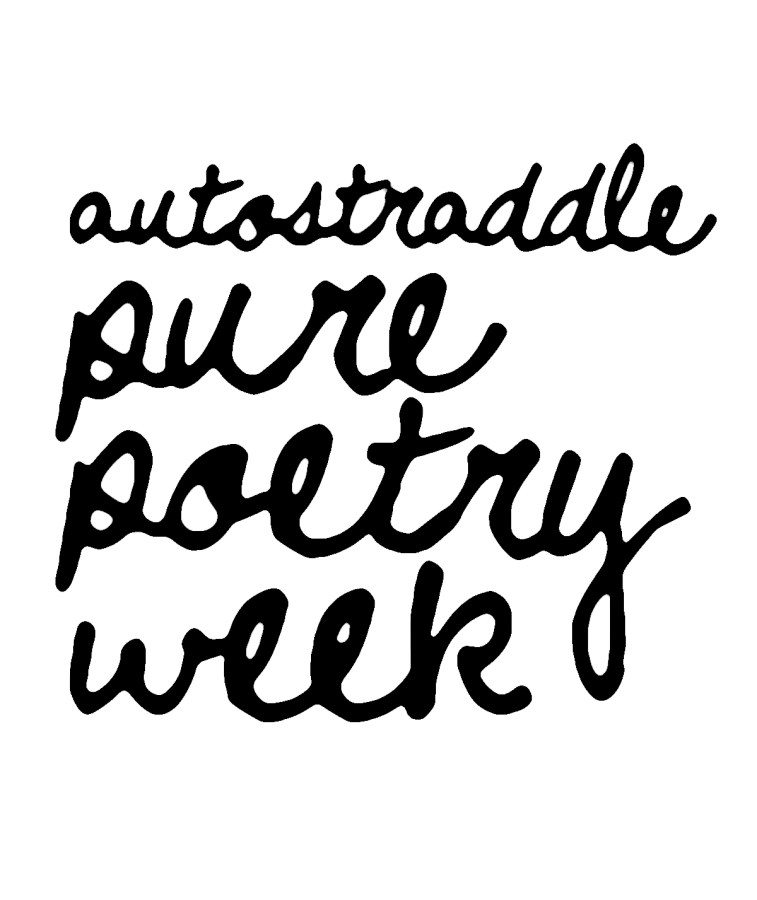 autostraddle
pure
poetry
week